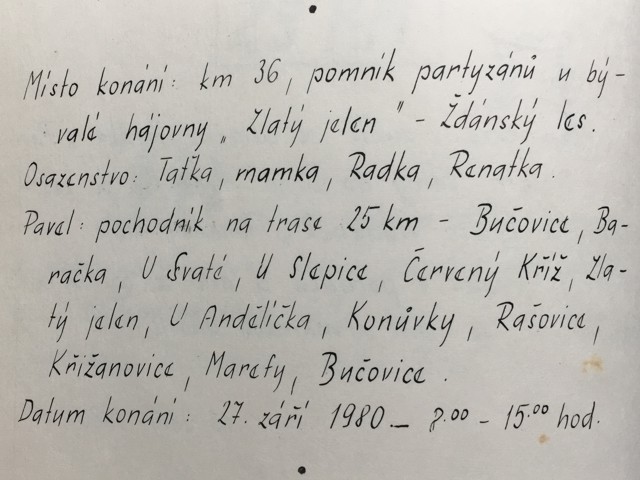 Místo konání: km 36, pomník partyzánů u bý-
valé hájovny „Zlatý jelen" - Ždánský les.
Osazenstvo: Taťka, mamka, Radka, Renatka.
Pavel: pochodník na trase 25 km - Bučovice, Ba-
račka, U Svaté, U Slepice, Červený Kříž, Zla-
tý jelen, U Andělíčka, Konůvky, Rašovice,
Křižanovice, Marefy, Bučovice.
Datum konání: 27. září 1980 - 7.00 - 15.00 hod.